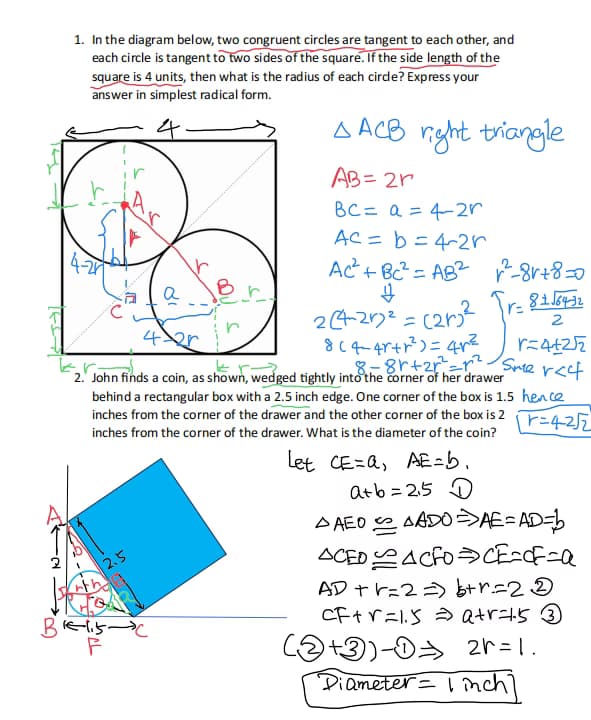 1. In the diagram below, two congruent circles are tangent to each other, and
each circle is tangent to two sides of the square. If the side length of the
square is 4 units, then what is the radius of each circle? Express your
answer in simplest radical form.
4
r
r
r
A
r
4-2r
b
r
a
B
r
C
4-2r
r
r
r
r
△ ACB right triangle
AB = 2r
BC = a = 4-2r
AC = b = 4-2r
AC² + BC² = AB²
⇓
2(4-2r)² = (2r)²
8(4-4r+r²) = 4r²
8-8r+2r²=r²
r²-8r+8=0
r= 8±√64-32 / 2
r=4±2√2
Since r<4
hence
r=4-2√2
2. John finds a coin, as shown, wedged tightly into the corner of her drawer
behind a rectangular box with a 2.5 inch edge. One corner of the box is 1.5
inches from the corner of the drawer and the other corner of the box is 2
inches from the corner of the drawer. What is the diameter of the coin?
A
2
b
2.5
D
r
E
a
r
O
B
1.5
C
F
Let CE=a, AE=b.
a+b=2.5 ①
△AEO ≌ △ADO ⇒ AE=AD=b
△CEO ≌ △CFO ⇒ CE=CF=a
AD + r=2 ⇒ b+r=2 ②
CF+r=1.5 ⇒ a+r=1.5 ③
(②+③)-① ⇒ 2r=1.
Diameter = 1 inch